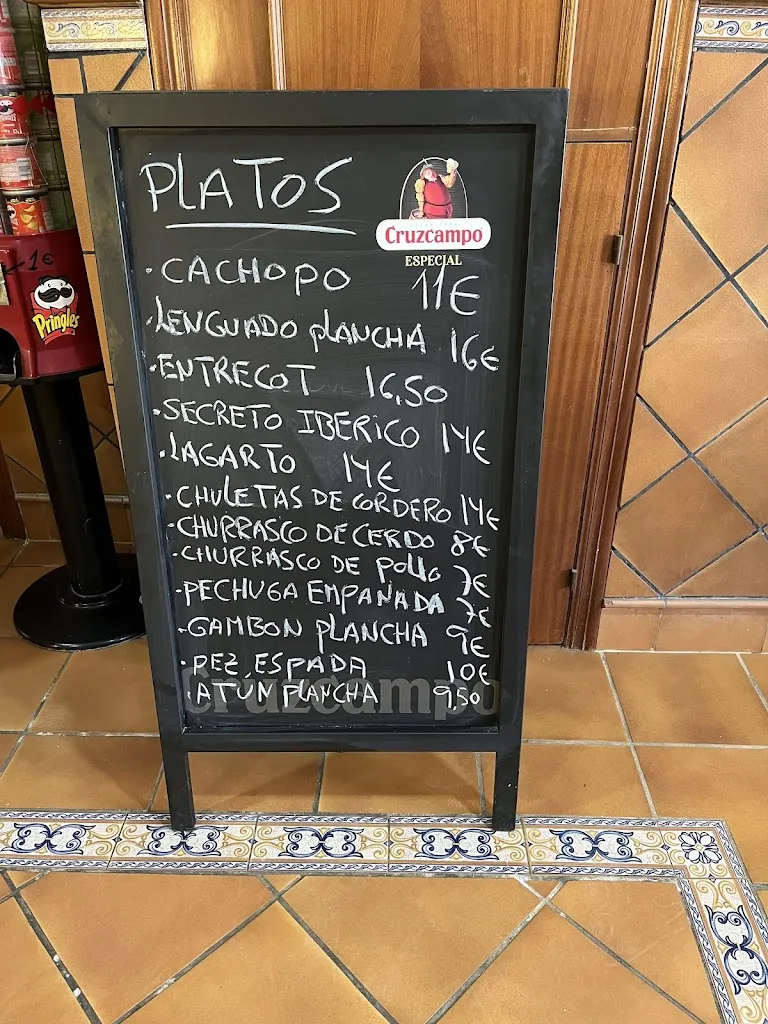 PLATOS
Cruzcampo
ESPECIAL
· CACHOPO 11€
· LENGUADO PLANCHA 16€
· ENTRECOT 16,50
· SECRETO IBERICO 14€
· LAGARTO 14€
· CHULETAS DE CORDERO 14€
· CHURRASCO DE CERDO 8€
· CHURRASCO DE POLLO 7€
· PECHUGA EMPANADA 7€
· GAMBON PLANCHA 9€
· PEZ ESPADA 10€
· ATUN PLANCHA 9,50
Cruzcampo
1€
Pringles